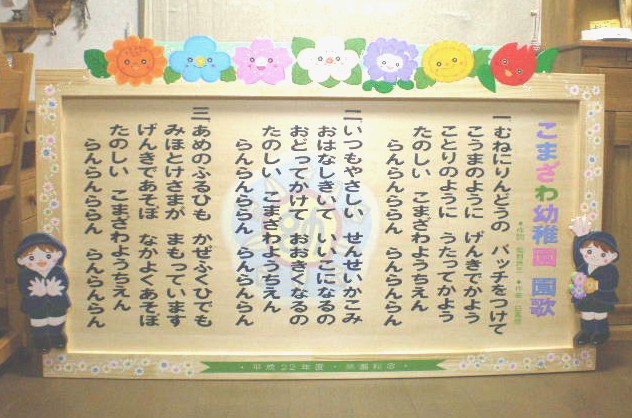 こまざわ幼稚園 園歌
一 むねにりんどうの バッチをつけて
こうまのように げんきでかよう
ことりのように うたってかよう
たのしい こまざわようちえん
らんらんらららん らんらんらん
二 いつもやさしい せんせいかこみ
おはなしきいて いいこになるの
おどってかけて おおきくなるの
たのしい こまざわようちえん
らんらんらららん らんらんらん
三 あめのふるひも かぜふくひでも
みほとけさまが まもっています
げんきであそぼ なかよくあそぼ
たのしい こまざわようちえん
らんらんらららん らんらんらん
・平成22年度・